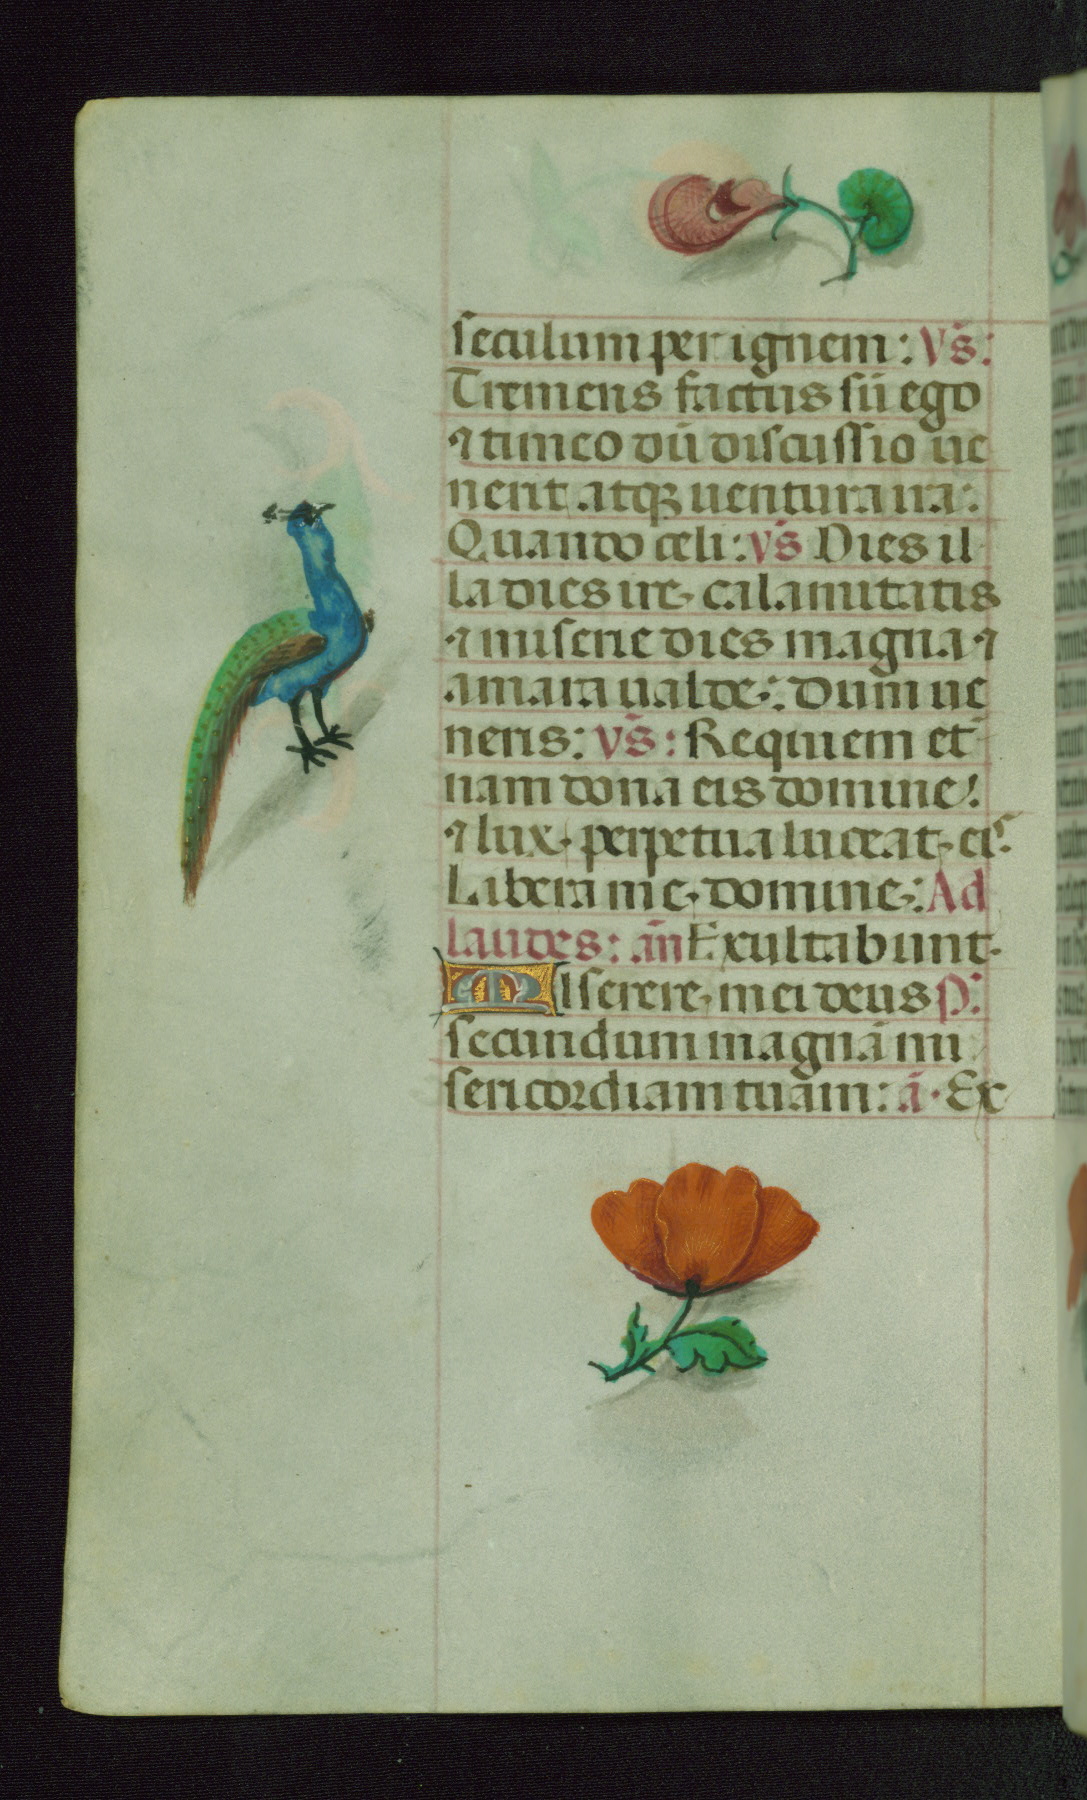 seculum per ignem: Vs̄:
Tremens factus sū ego
⁊ timeo dū discussio ue
nerit atqꝫ uentura ira:
Quando celi: vs̄ Dies il
la dies ire, calamitatis
⁊ miserie dies magna ⁊
amara ualde: Dum ue
neris: vs̄: Requiem et
nam dona eis domine:
⁊ lux perpetua luceat eis
Libera me domine: Ad
laudes: an̄ Exultabunt
Miserere mei deus P:
secundum magnā mi
sericordiam tuam: ā Ex